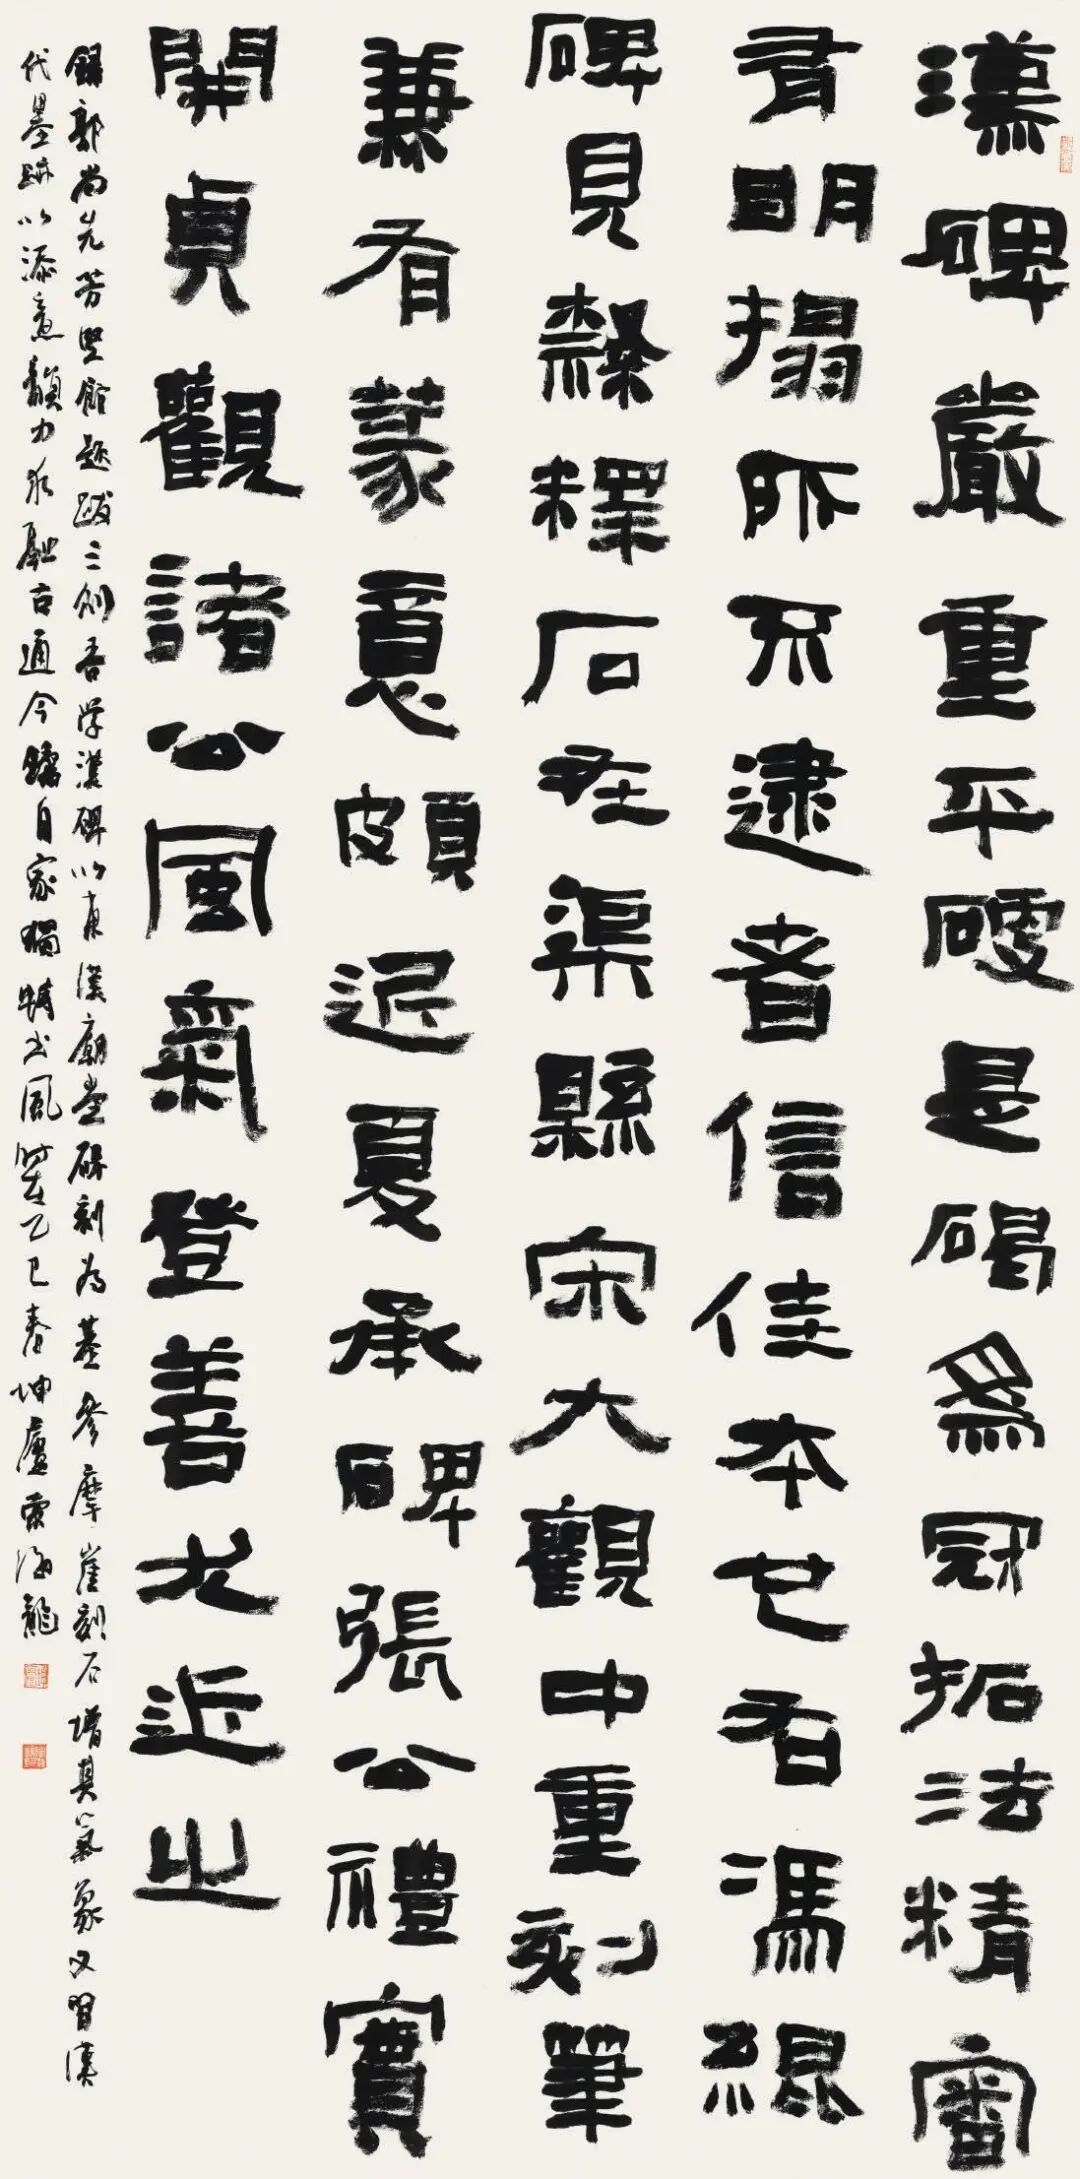 漢碑嚴重平硬是碣爲冠拓法精審
有明搨所不逮者信佳本也右馮緄
碑見隸釋石在渠縣宋大觀中重刻筆
兼有篆意頗近夏承碑張公禮實
開貞觀諸公風氣登善尤近之
錄郭尚先芳堅館題跋三則吾学漢碑以東漢廟堂碑刻为基參摩崖刻石增其氣象又習漢
代墨跡以添意韻力求融古通今鑄自家獨特书風時在乙巳春坤廬海龍